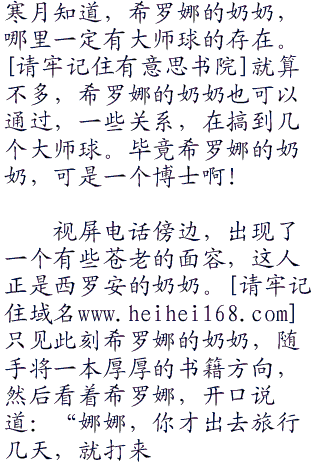 寒月知道，希罗娜的奶奶，
哪里一定有大师球的存在。
[请牢记住有意思书院]就算
不多，希罗娜的奶奶也可以
通过，一些关系，在搞到几
个大师球。毕竟希罗娜的奶
奶，可是一个博士啊！
视屏电话傍边，出现了
一个有些苍老的面容，这人
正是西罗安的奶奶。[请牢记
住域名www.heihei168.com]
只见此刻希罗娜的奶奶，随
手将一本厚厚的书籍方向，
然后看着希罗娜，开口说
道：“娜娜，你才出去旅行
几天，就打来